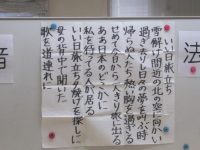 いい日旅立ち
雪解け間近の北の空に向かい
過ぎ去りし日々の夢を叫ぶ時
帰らぬ人たち熱い胸をよぎる
せめて今日から一人きり旅に出る
ああ日本のどこかに
私を待ってる人が居る
いい日旅立ち夕焼けを探しに
母の背中で聞いた
歌を道連れに
法
音